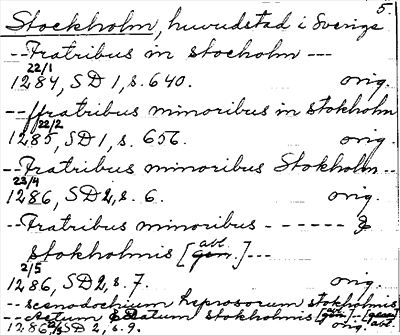 5.
Stockholm, huvudstad i Sverige
-- Fratribus in stocholm ---
22/1
1284, SD 1, s. 640. orig.
-- ffratribus minoribus in stokholm
22/2
1285, SD 1, s. 656. orig.
-- Fratribus minoribus Stokholm --
23/4
1286, SD 2, s. 6. orig.
-- Fratribus minoribus - - - - - - &
stokholmis [abl. gen.] ---
2/5
1286, SD 2, s. 7. orig.
-- scenodochium leprosorum stokholmis
-- Actum & datum stokholmis
1286 SD 2, s. 9. orig.